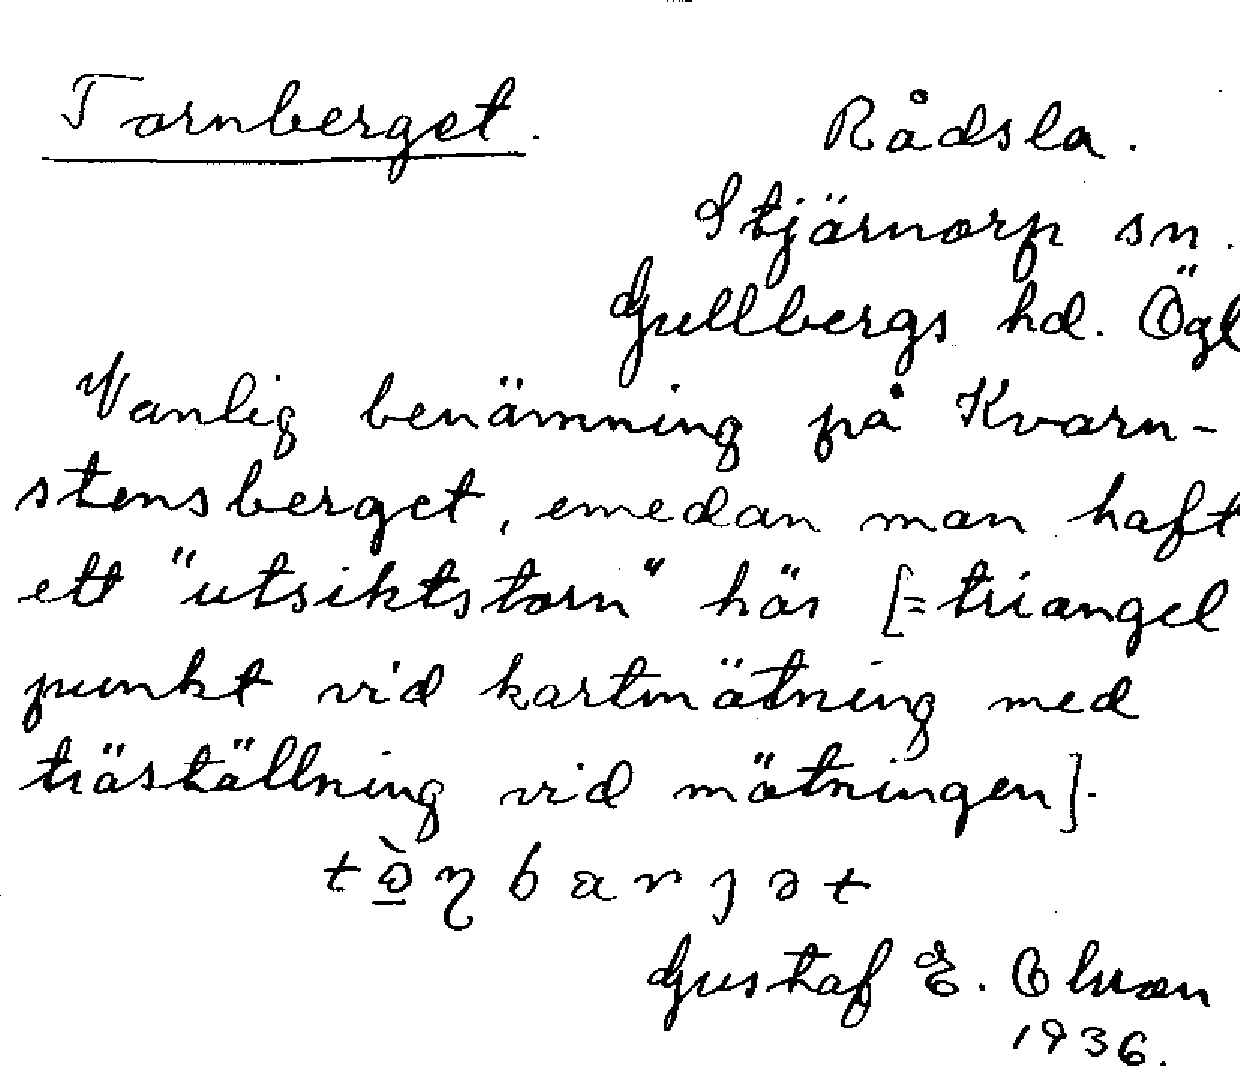 Tornberget.
Rådsla.
Stjärnorp sn.
Gullbergs hd. Ögl
Vanlig benämning på Kvarn-
stensberget, emedan man haft
ett "utsiktstorn" här [= triangel
punkt vid kartmätning med
träställning vid mätningen].
Gustaf E. Olsson
1936.